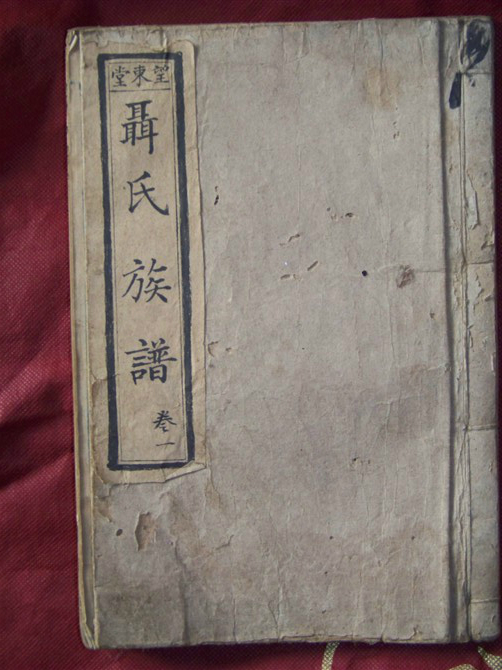 望東堂
聶氏族譜
卷一